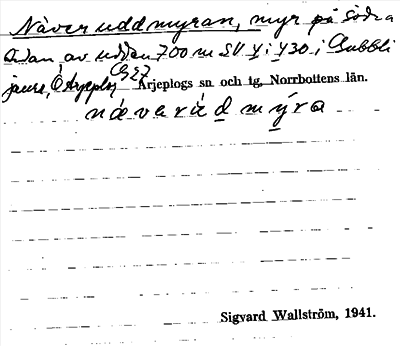 Näveruddmyran, myr på södra
sidan av udden 700 m SV y i y30 i Gubbli
jaure, Ö Arjeplog Arjeplogs sn och tg. Norrbottens län.
nävarudmýra
Sigvard Wallström, 1941.